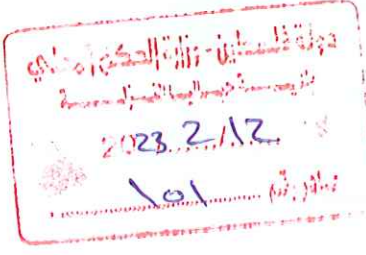 دولة فلسطين - وزارة الحكم المحلي
2023 2/12
صادر رقم ١٥١